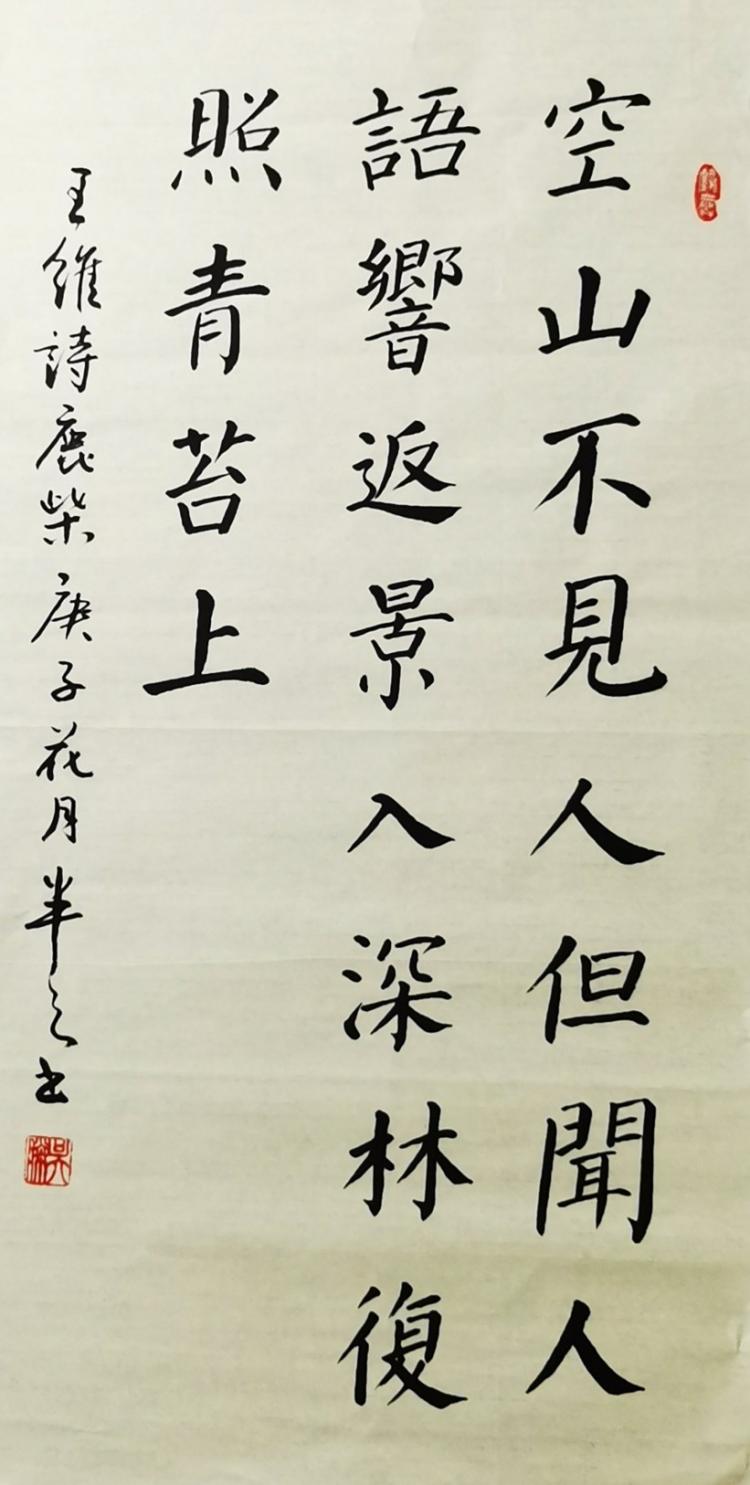 空山不見人但聞人
語響返景入深林復
照青苔上
王維詩鹿柴庚子花月半之書